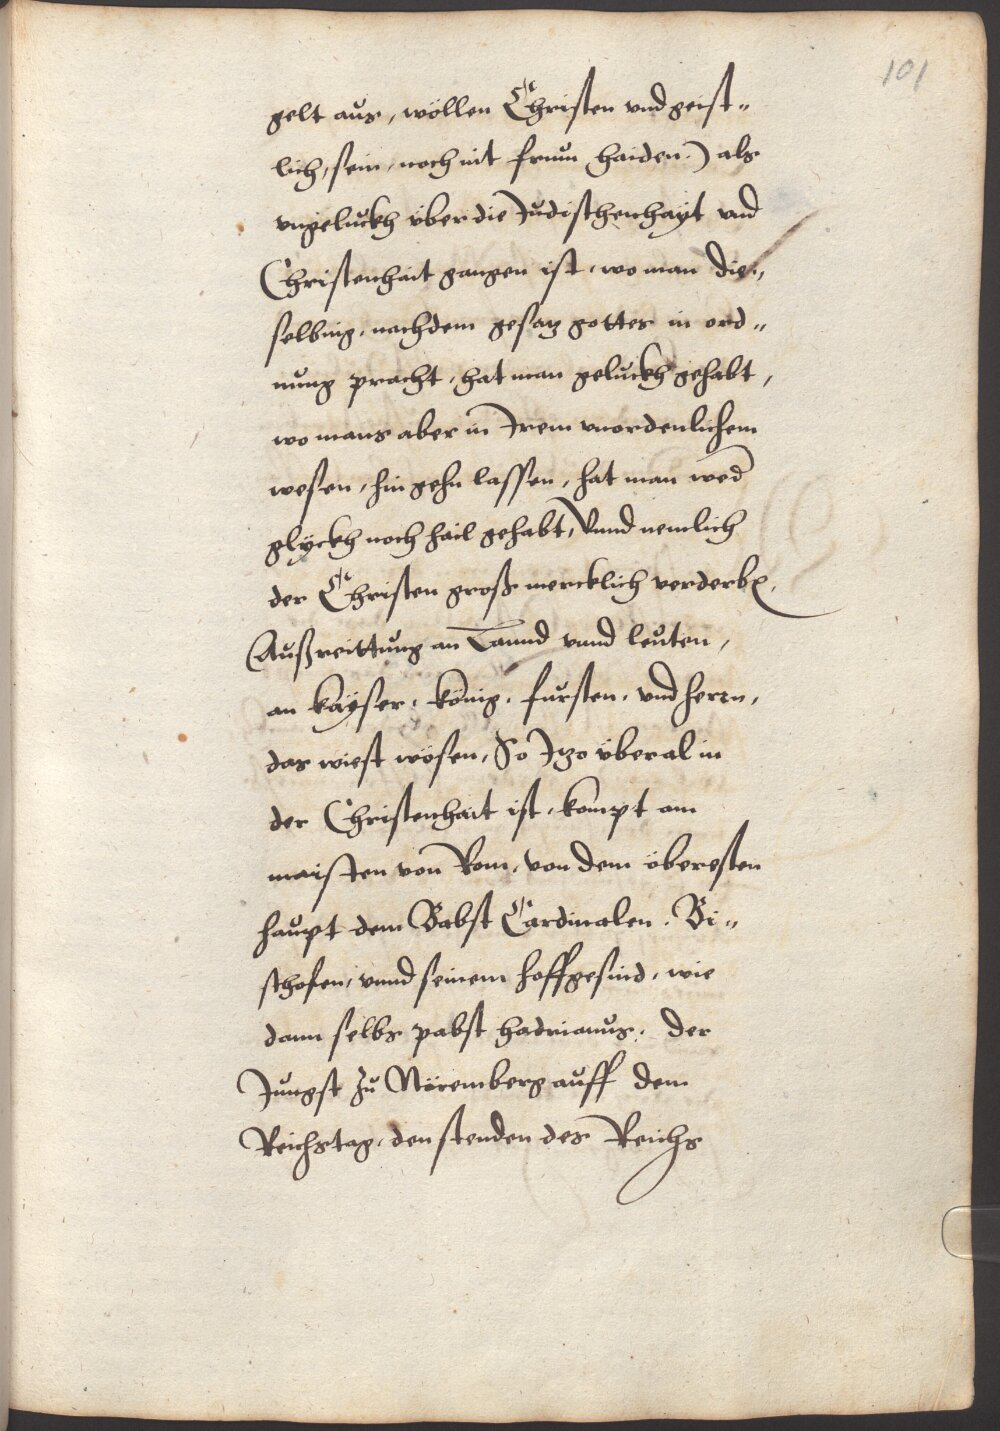 101
gelt aus, wöllen Christen vnd geist„
lich, sein, noch nit frum haiden.) als
vngeluckh über die Judischenhayt vnd
Christenhait gangen ist, wo man die„
selbing, nachdem gesatz gottes in ord„
nung pracht, hat man geluckh gehabt,
wo mans aber in Irem vnordenlichem
wesen, hin gehn lassen, hat man wed
glyckh noch hail gehabt, Vnnd nemlich
der Christen groß mercklich verderben,
Außreittung an Lannd vnnd leuten,
an kayser, könig, fürsten, vnd herrn,
das wiest wösen, So Jtzo überal in
der Christenhait ist, kompt am
maisten von Rom, von dem öberesten
haupt dem Babst Cardinalen, Bi„
schofen, vnnd seinem hoffgesind, wie
dann selbs pabst hadrianus, der
Jungst zu Nüremberg auff dem
Reichstag, den stenden des Reichs